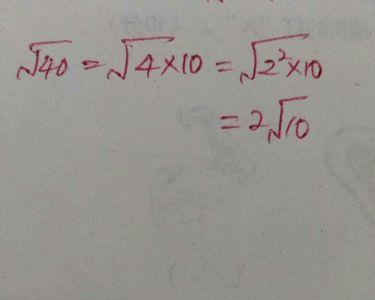 √40 = √4×10 = √2²×10
= 2√10